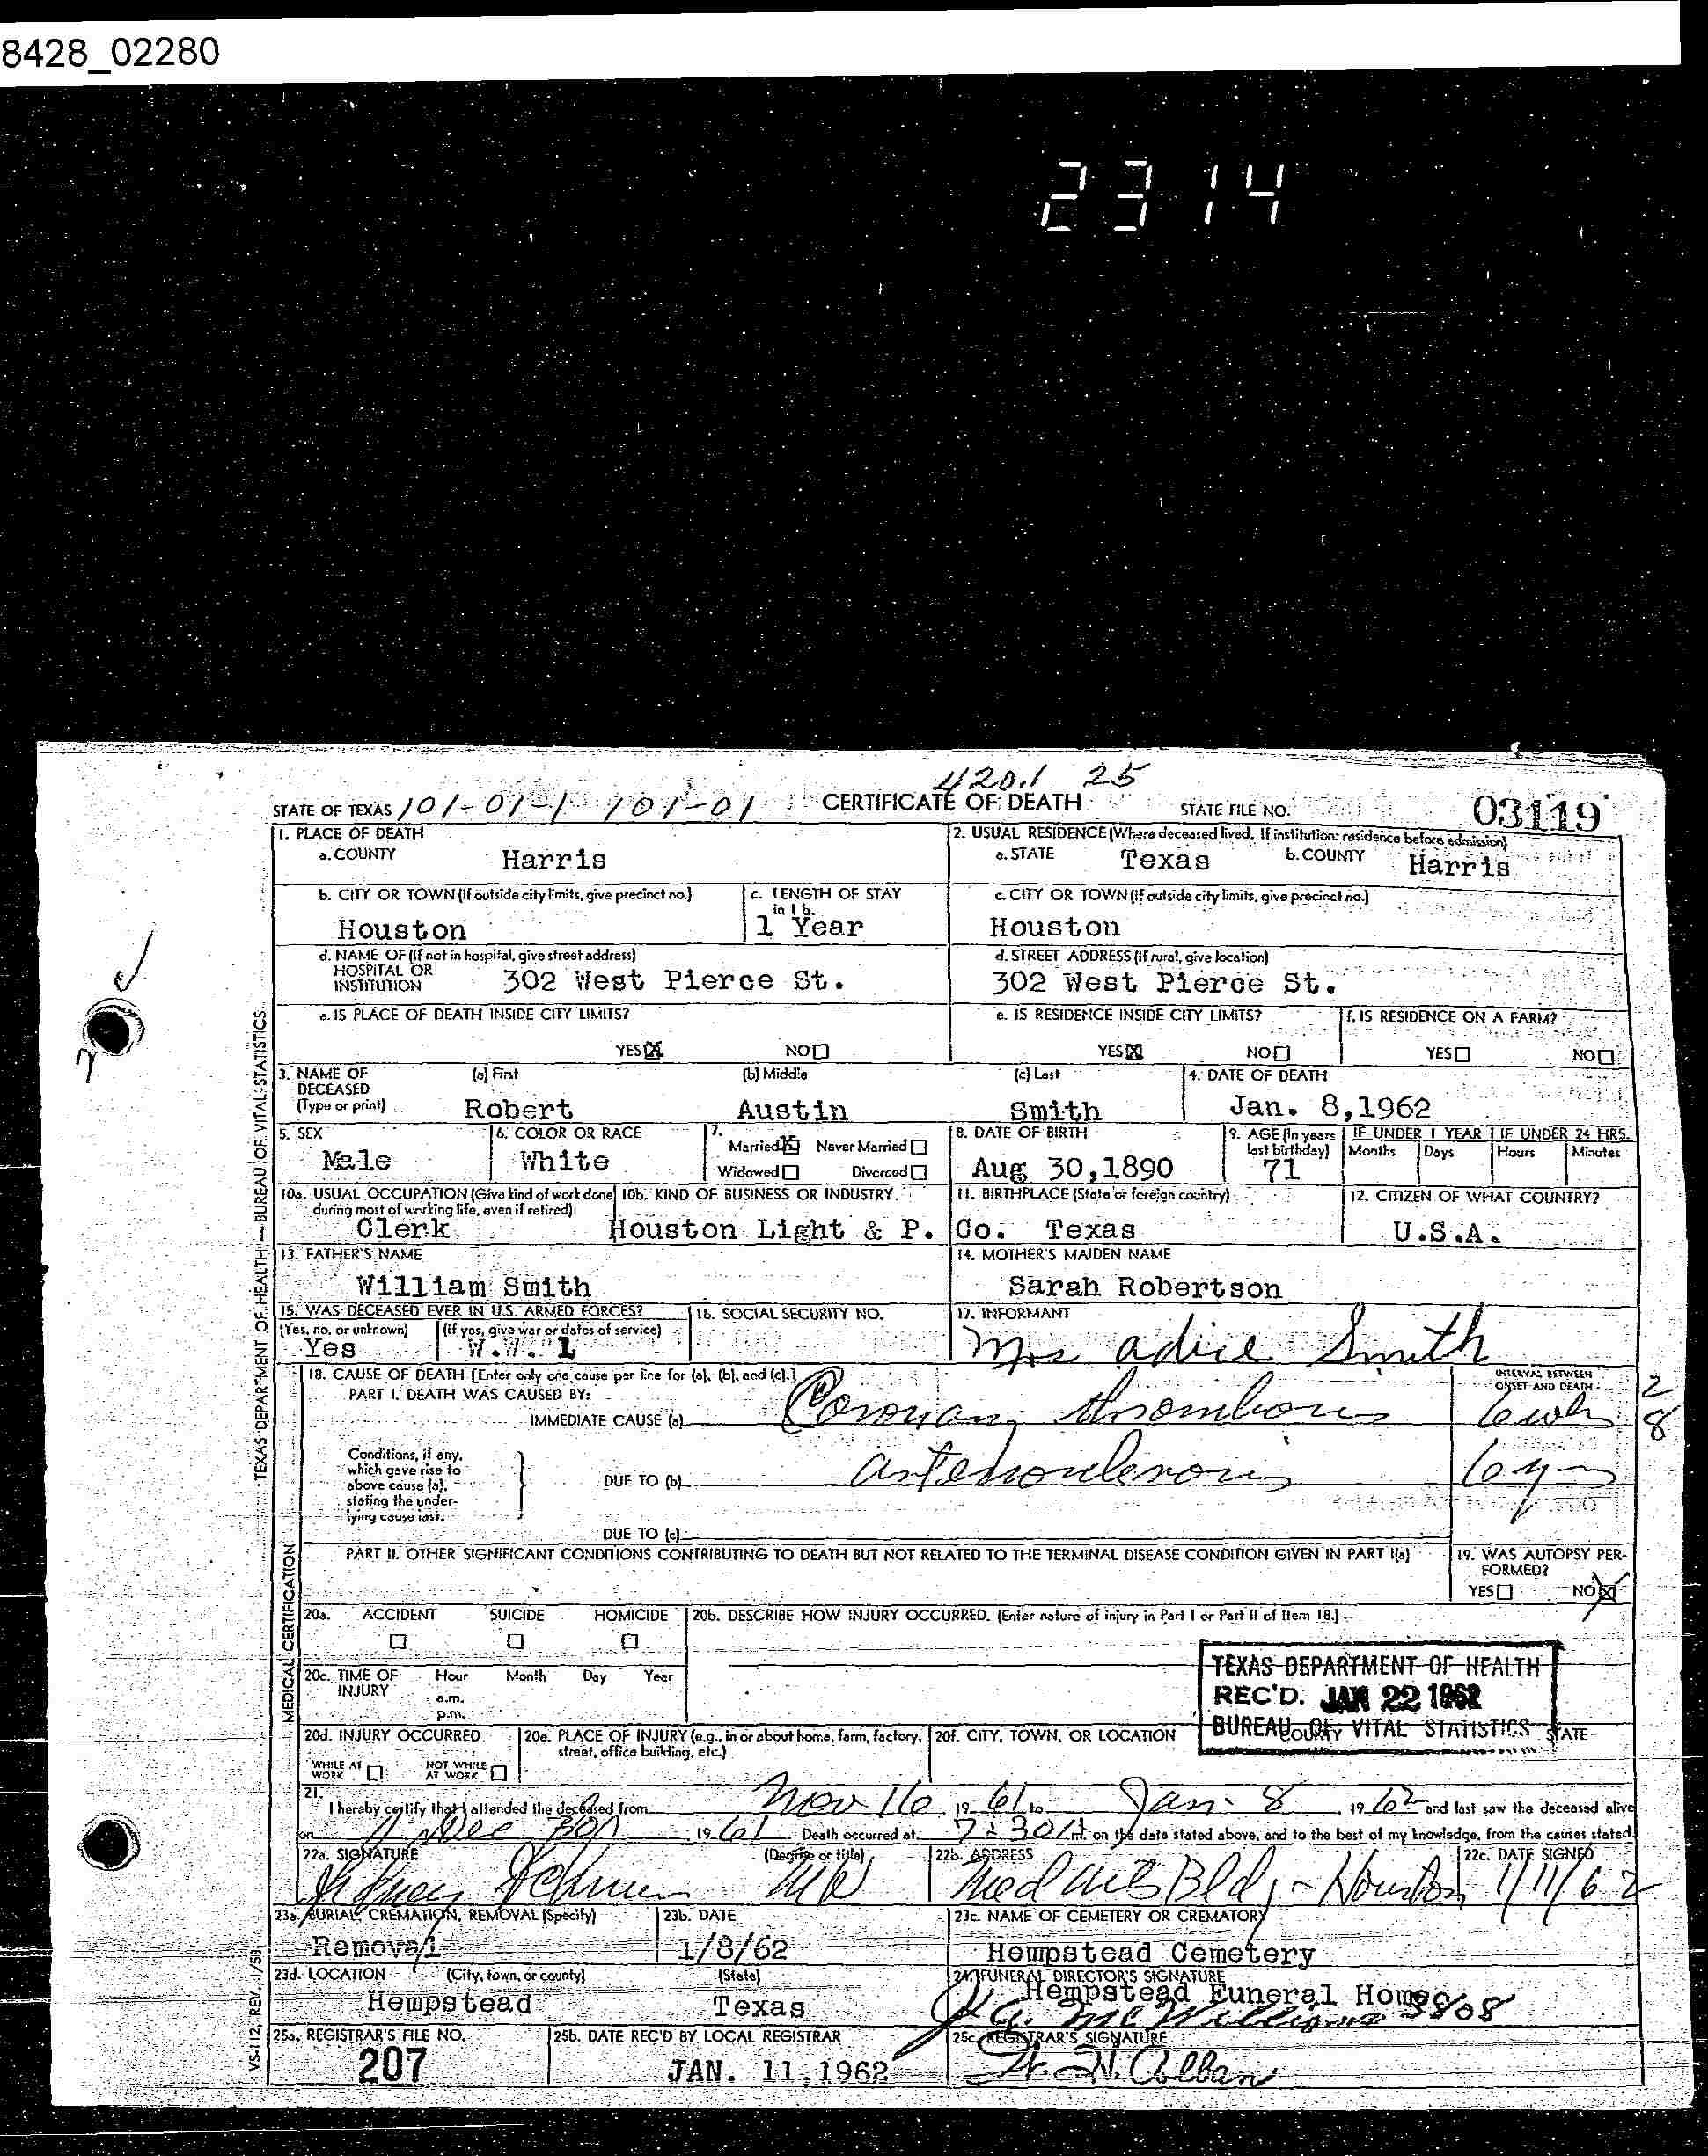 8428_02280
2314
420.1 25
STATE OF TEXAS 101-01-1 101-01 CERTIFICATE OF DEATH STATE FILE NO. 03119
1. PLACE OF DEATH
a. COUNTY Harris
2. USUAL RESIDENCE (Where deceased lived. If institution: residence before admission)
a. STATE Texas b. COUNTY Harris
b. CITY OR TOWN (If outside city limits, give precinct no.) Houston
c. LENGTH OF STAY in 1 b. 1 Year
c. CITY OR TOWN (If outside city limits, give precinct no.) Houston
d. NAME OF (If not in hospital, give street address) HOSPITAL OR INSTITUTION 302 West Pierce St.
d. STREET ADDRESS (If rural, give location) 302 West Pierce St.
e. IS PLACE OF DEATH INSIDE CITY LIMITS? YES X NO
e. IS RESIDENCE INSIDE CITY LIMITS? YES X NO
f. IS RESIDENCE ON A FARM? YES NO
3. NAME OF DECEASED (Type or print) (a) First Robert (b) Middle Austin (c) Last Smith
4. DATE OF DEATH Jan. 8,1962
5. SEX Male
6. COLOR OR RACE White
7. Married X Never Married Widowed Divorced
8. DATE OF BIRTH Aug 30,1890
9. AGE (In years last birthday) 71
IF UNDER 1 YEAR Months Days
IF UNDER 24 HRS. Hours Minutes
10a. USUAL OCCUPATION (Give kind of work done during most of working life, even if retired) Clerk
10b. KIND OF BUSINESS OR INDUSTRY Houston Light & P. Co.
11. BIRTHPLACE (State or foreign country) Texas
12. CITIZEN OF WHAT COUNTRY? U.S.A.
13. FATHER'S NAME William Smith
14. MOTHER'S MAIDEN NAME Sarah Robertson
15. WAS DECEASED EVER IN U.S. ARMED FORCES? (Yes, no, or unknown) Yes (If yes, give war or dates of service) W.W. 1
16. SOCIAL SECURITY NO.
17. INFORMANT Mrs Adice Smith
18. CAUSE OF DEATH [Enter only one cause per line for (a), (b), and (c).]
PART I. DEATH WAS CAUSED BY:
INTERVAL BETWEEN ONSET AND DEATH
IMMEDIATE CAUSE (a) Coronary thrombosis 6 wks
28
Conditions, if any, which gave rise to above cause (a), stating the underlying cause last.
DUE TO (b) arteriosclerosis 6 yrs
DUE TO (c)
PART II. OTHER SIGNIFICANT CONDITIONS CONTRIBUTING TO DEATH BUT NOT RELATED TO THE TERMINAL DISEASE CONDITION GIVEN IN PART I(a)
19. WAS AUTOPSY PERFORMED? YES NO X
20a. ACCIDENT SUICIDE HOMICIDE
20b. DESCRIBE HOW INJURY OCCURRED. (Enter nature of injury in Part I or Part II of Item 18.)
20c. TIME OF INJURY Hour Month Day Year a.m. p.m.
TEXAS DEPARTMENT OF HEALTH
REC'D. JAN 22 1962
BUREAU OF VITAL STATISTICS
20d. INJURY OCCURRED WHILE AT WORK NOT WHILE AT WORK
20e. PLACE OF INJURY (e.g., in or about home, farm, factory, street, office building, etc.)
20f. CITY, TOWN, OR LOCATION COUNTY STATE
21. I hereby certify that I attended the deceased from Nov 16, 1961 to Jan. 8, 1962 and last saw the deceased alive
on Dec 30, 1961 Death occurred at 7:30 A m. on the date stated above, and to the best of my knowledge, from the causes stated.
22a. SIGNATURE (Degree or title) MD
22b. ADDRESS Med Arts Bldg - Houston
22c. DATE SIGNED 1/11/62
23a. BURIAL, CREMATION, REMOVAL (Specify) Removal
23b. DATE 1/8/62
23c. NAME OF CEMETERY OR CREMATORY Hempstead Cemetery
23d. LOCATION (City, town, or county) Hempstead (State) Texas
24. FUNERAL DIRECTOR'S SIGNATURE Hempstead Funeral Home
J. A. McWilliams 3808
25a. REGISTRAR'S FILE NO. 207
25b. DATE REC'D BY LOCAL REGISTRAR JAN. 11, 1962
25c. REGISTRAR'S SIGNATURE
TEXAS DEPARTMENT OF HEALTH — BUREAU OF VITAL STATISTICS
MEDICAL CERTIFICATION
VS-112, REV. 1/58